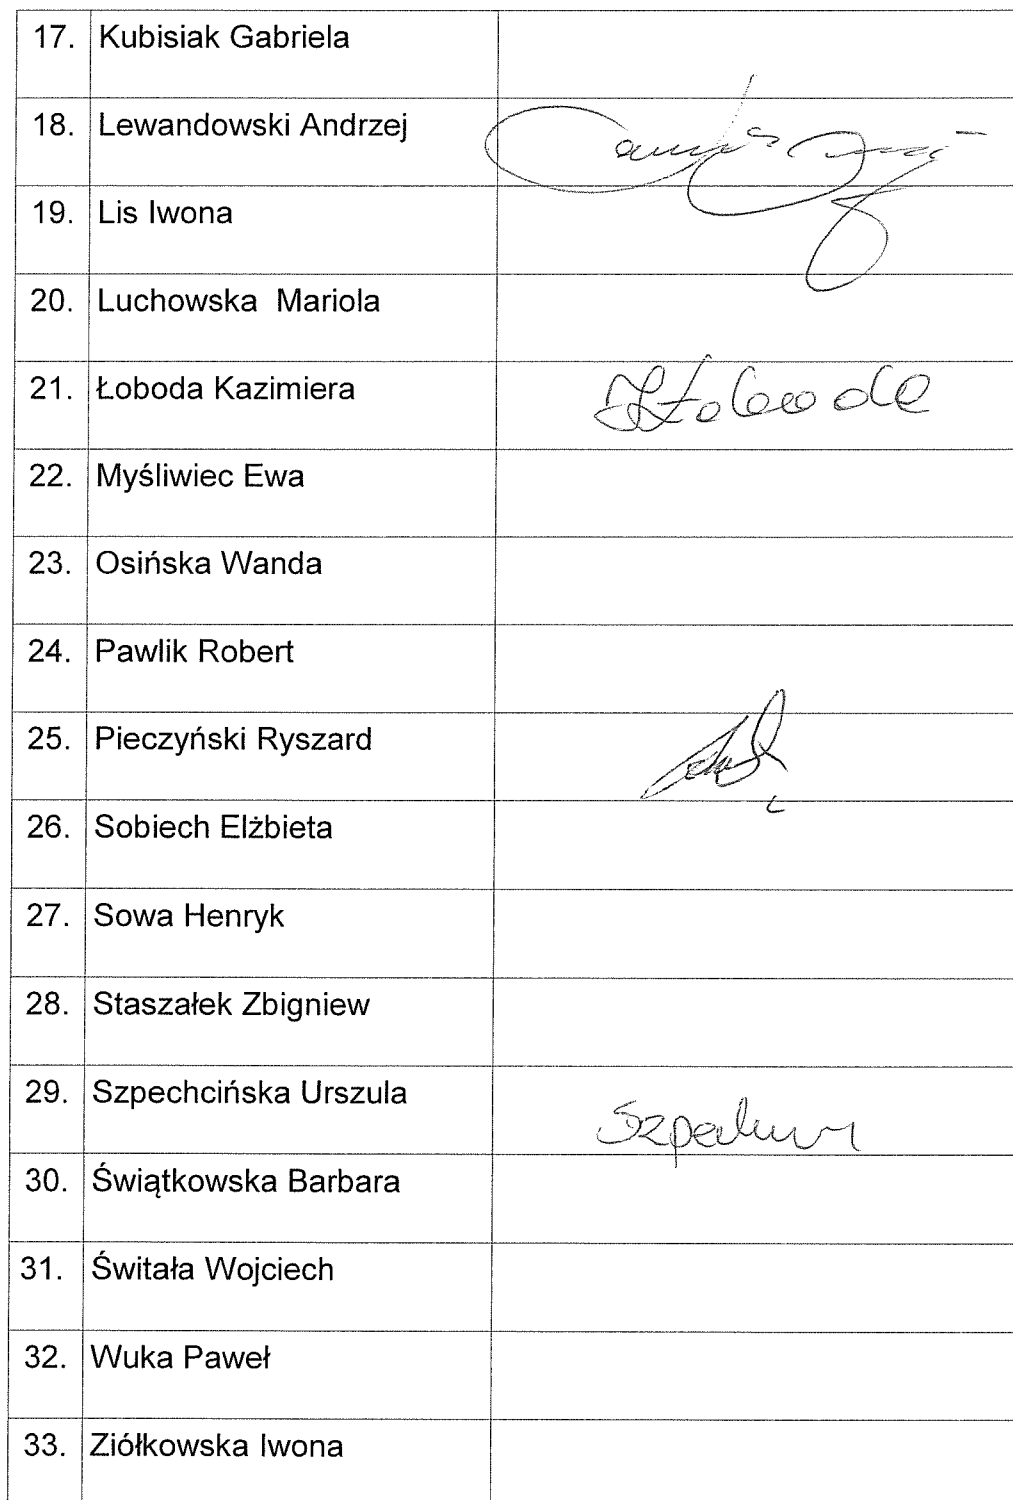 17. Kubisiak Gabriela
18. Lewandowski Andrzej
19. Lis Iwona
20. Luchowska Mariola
21. Łoboda Kazimiera
22. Myśliwiec Ewa
23. Osińska Wanda
24. Pawlik Robert
25. Pieczyński Ryszard
26. Sobiech Elżbieta
27. Sowa Henryk
28. Staszałek Zbigniew
29. Szpechcińska Urszula
30. Świątkowska Barbara
31. Świtała Wojciech
32. Wuka Paweł
33. Ziółkowska Iwona